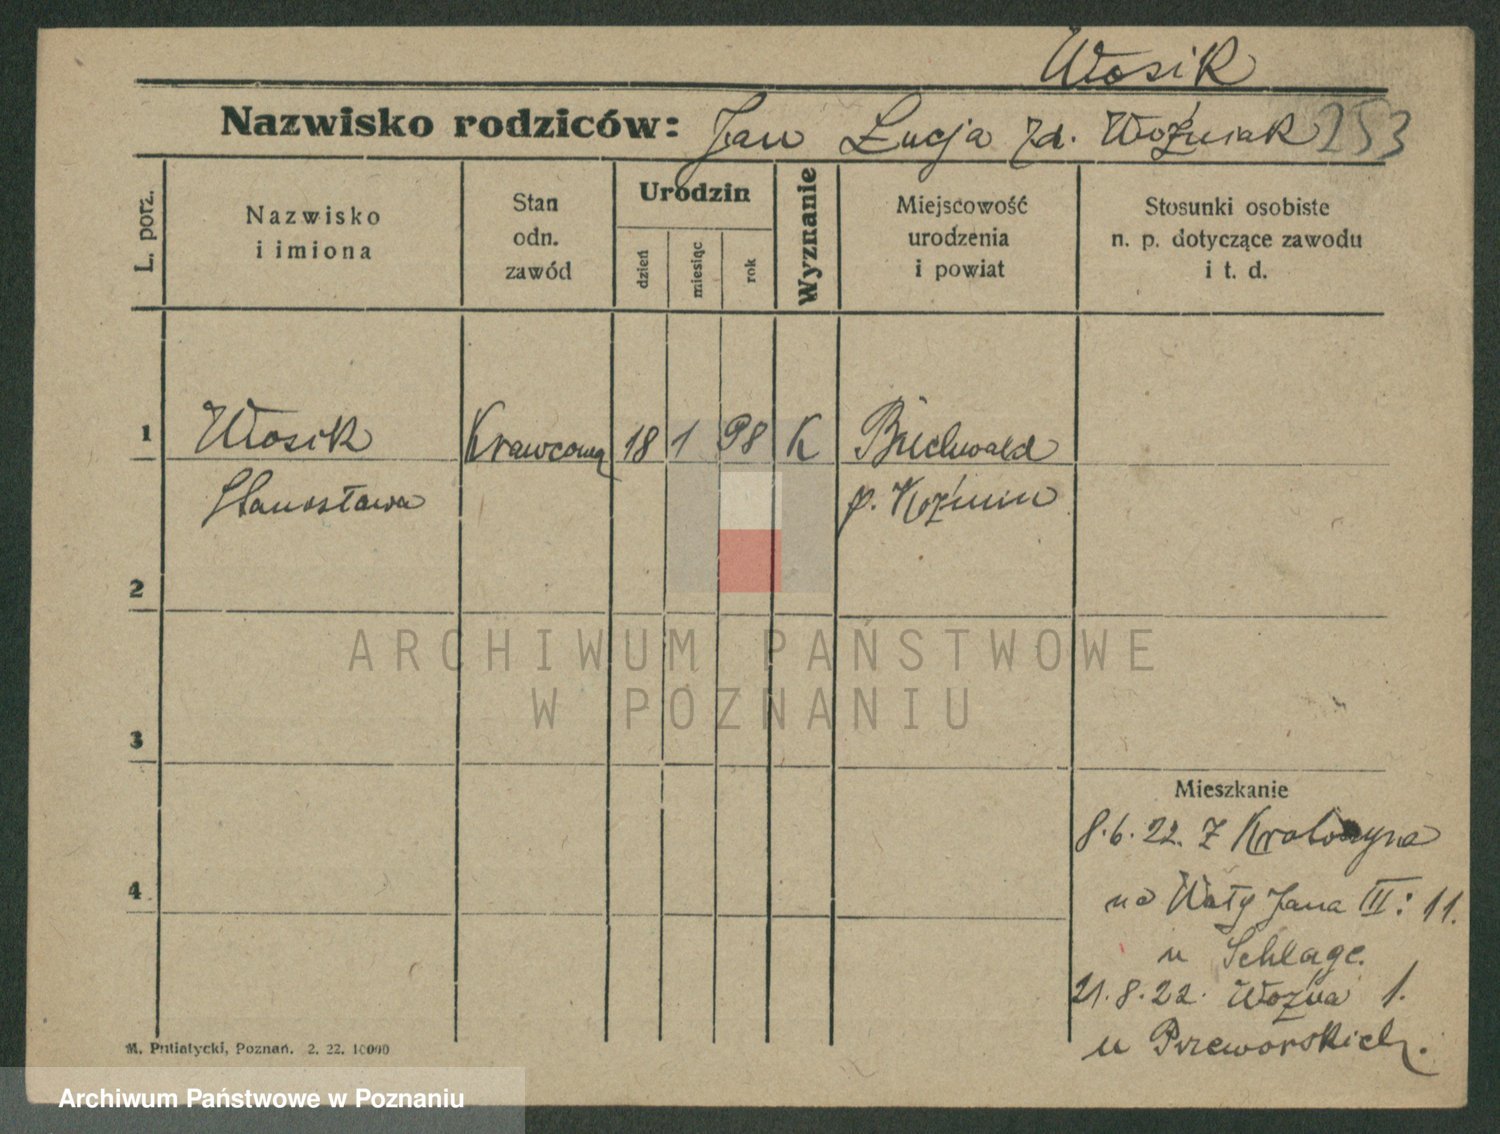 Wosik
Nazwisko rodziców: Jan Łucja zd. Woźniak 253
L. porz.
Nazwisko
i imiona
Stan
odn.
zawód
Urodzin
dzień
miesiąc
rok
Wyznanie
Miejscowość
urodzenia
i powiat
Stosunki osobiste
n. p. dotyczące zawodu
i t. d.
1 Wosik Krawcowa 18 1 98 K Buchwald
Stanosława p. Koźmin
2
3
Mieszkanie
8.6.22. Z Krotoszyna
4
na Wały Jana III: 11.
u Schlage.
21.8.22. Woźna 1.
u Przeworskich.
M. Putiatycki, Poznań. 2. 22. 10000
ARCHIWUM PAŃSTWOWE
W POZNANIU
Archiwum Państwowe w Poznaniu